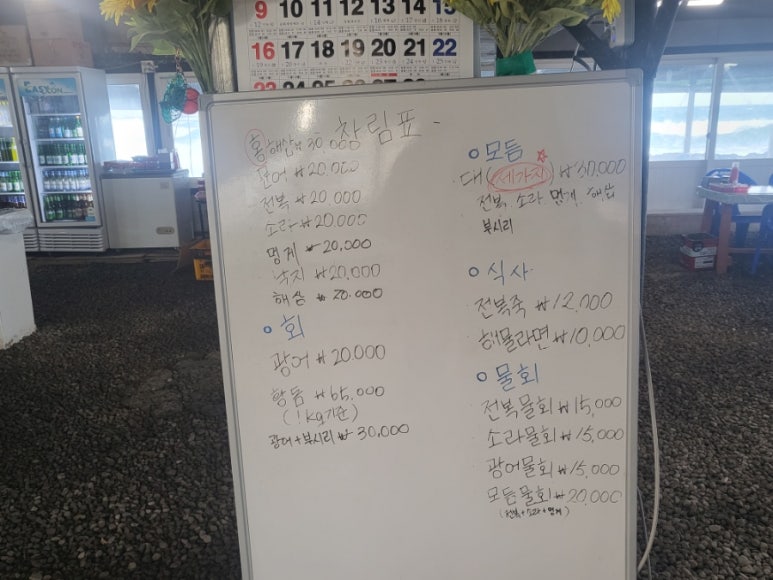 9 10 11 12 13 14 15
16 17 18 19 20 21 22
CASS
차림표
홍해삼 ₩ 30,000
광어 ₩20,000
전복 ₩20,000
소라 ₩20,000
멍게 ₩20,000
낙지 ₩20,000
해삼 ₩20,000
회
광어 ₩20,000
황돔 ₩65,000
(1kg기준)
광어+부시리 ₩30,000
모듬
대 (세가지) ₩50,000
전복 소라 멍게 해삼
부시리
식사
전복죽 ₩12,000
해물라면 ₩10,000
물회
전복물회 ₩15,000
소라물회 ₩15,000
광어물회 ₩15,000
모듬물회 ₩20,000
(전복+소라+멍게)